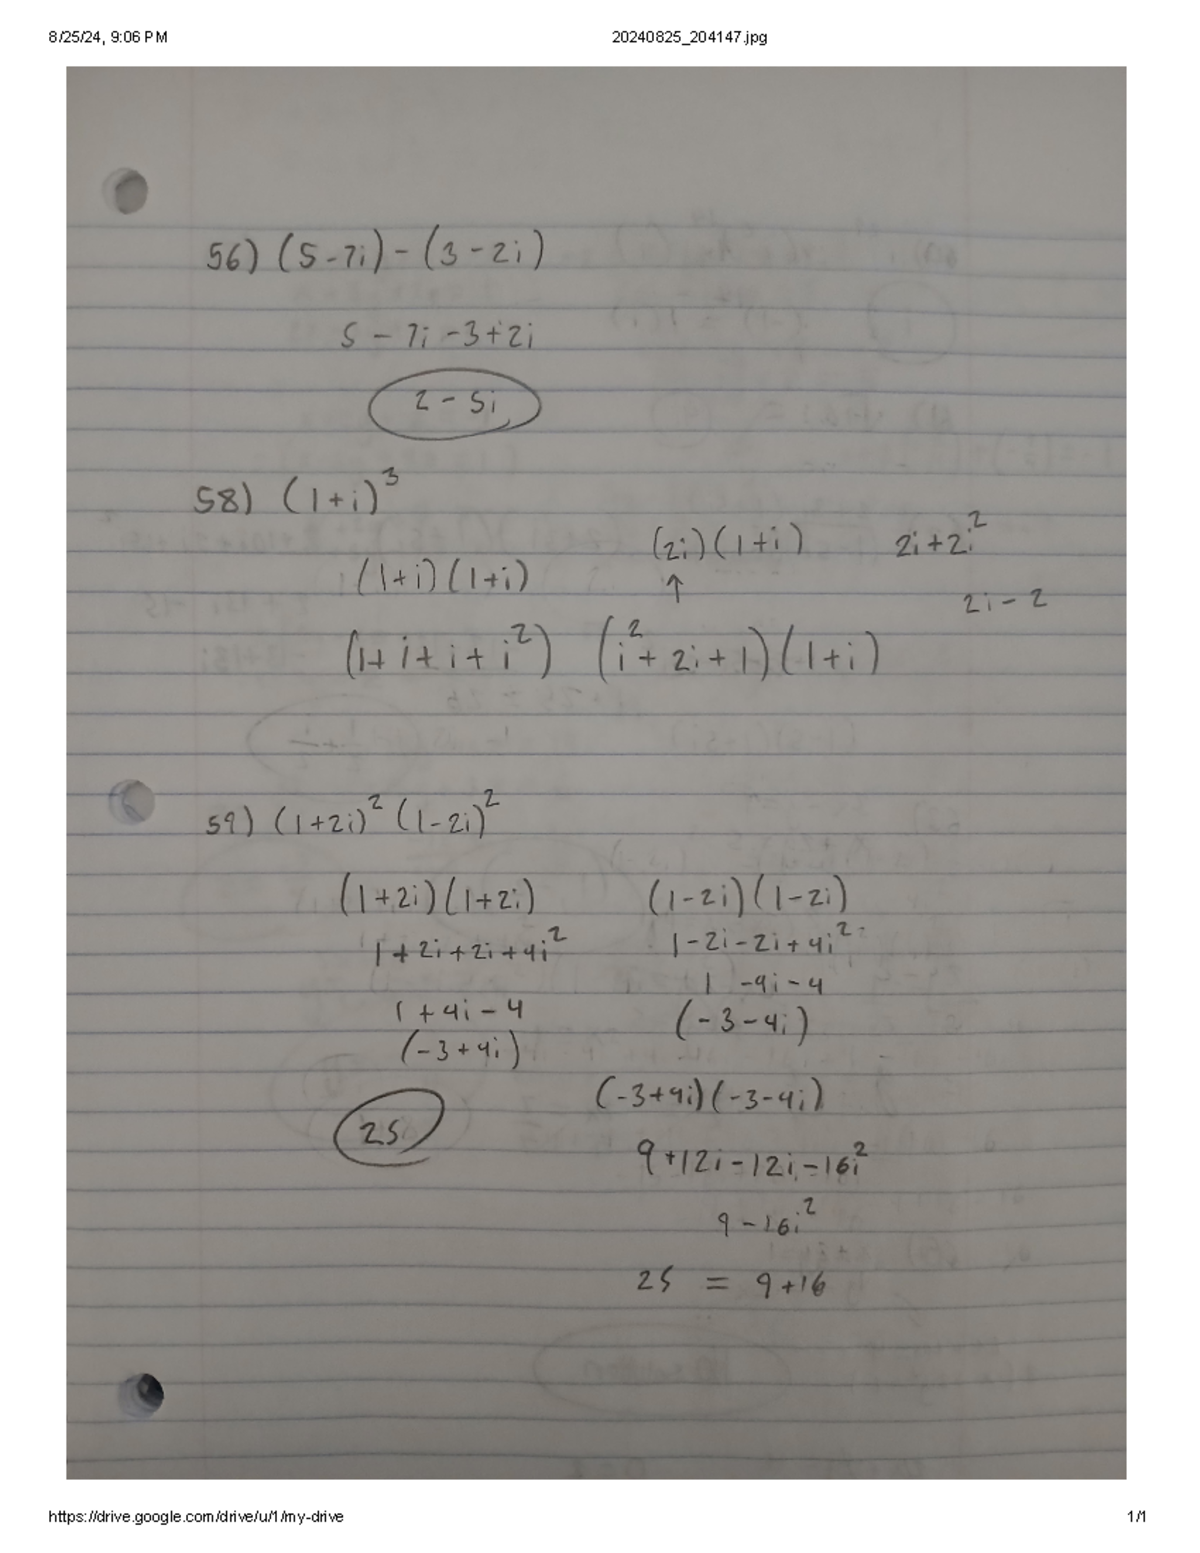 8/25/24, 9:06 PM 20240825_204147.jpg
56) (5-7i) - (3-2i)
5 - 7i - 3 + 2i
2 - 5i
58) (1+i)³
(1+i)(1+i)
(1+i+i+i²) (i²+2i+1)(1+i)
(2i)(1+i) 2i+2i²
↑
2i-2
59) (1+2i)² (1-2i)²
(1+2i)(1+2i) (1-2i)(1-2i)
1+2i+2i+4i² 1-2i-2i+4i²
1+4i-4 1 -4i-4
(-3+4i) (-3-4i)
25 (-3+4i)(-3-4i)
9+12i-12i-16i²
9-16i²
25 = 9+16
https://drive.google.com/drive/u/1/my-drive 1/1